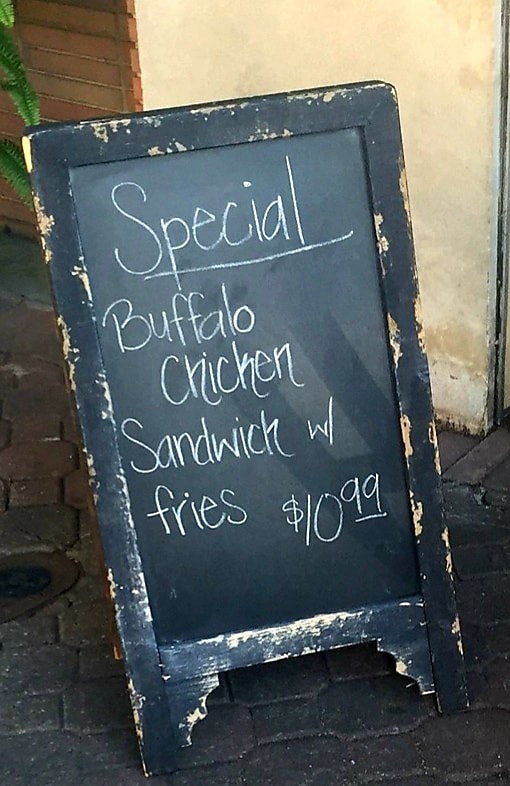 Special
Buffalo
Chicken
Sandwich w/
fries $10.99